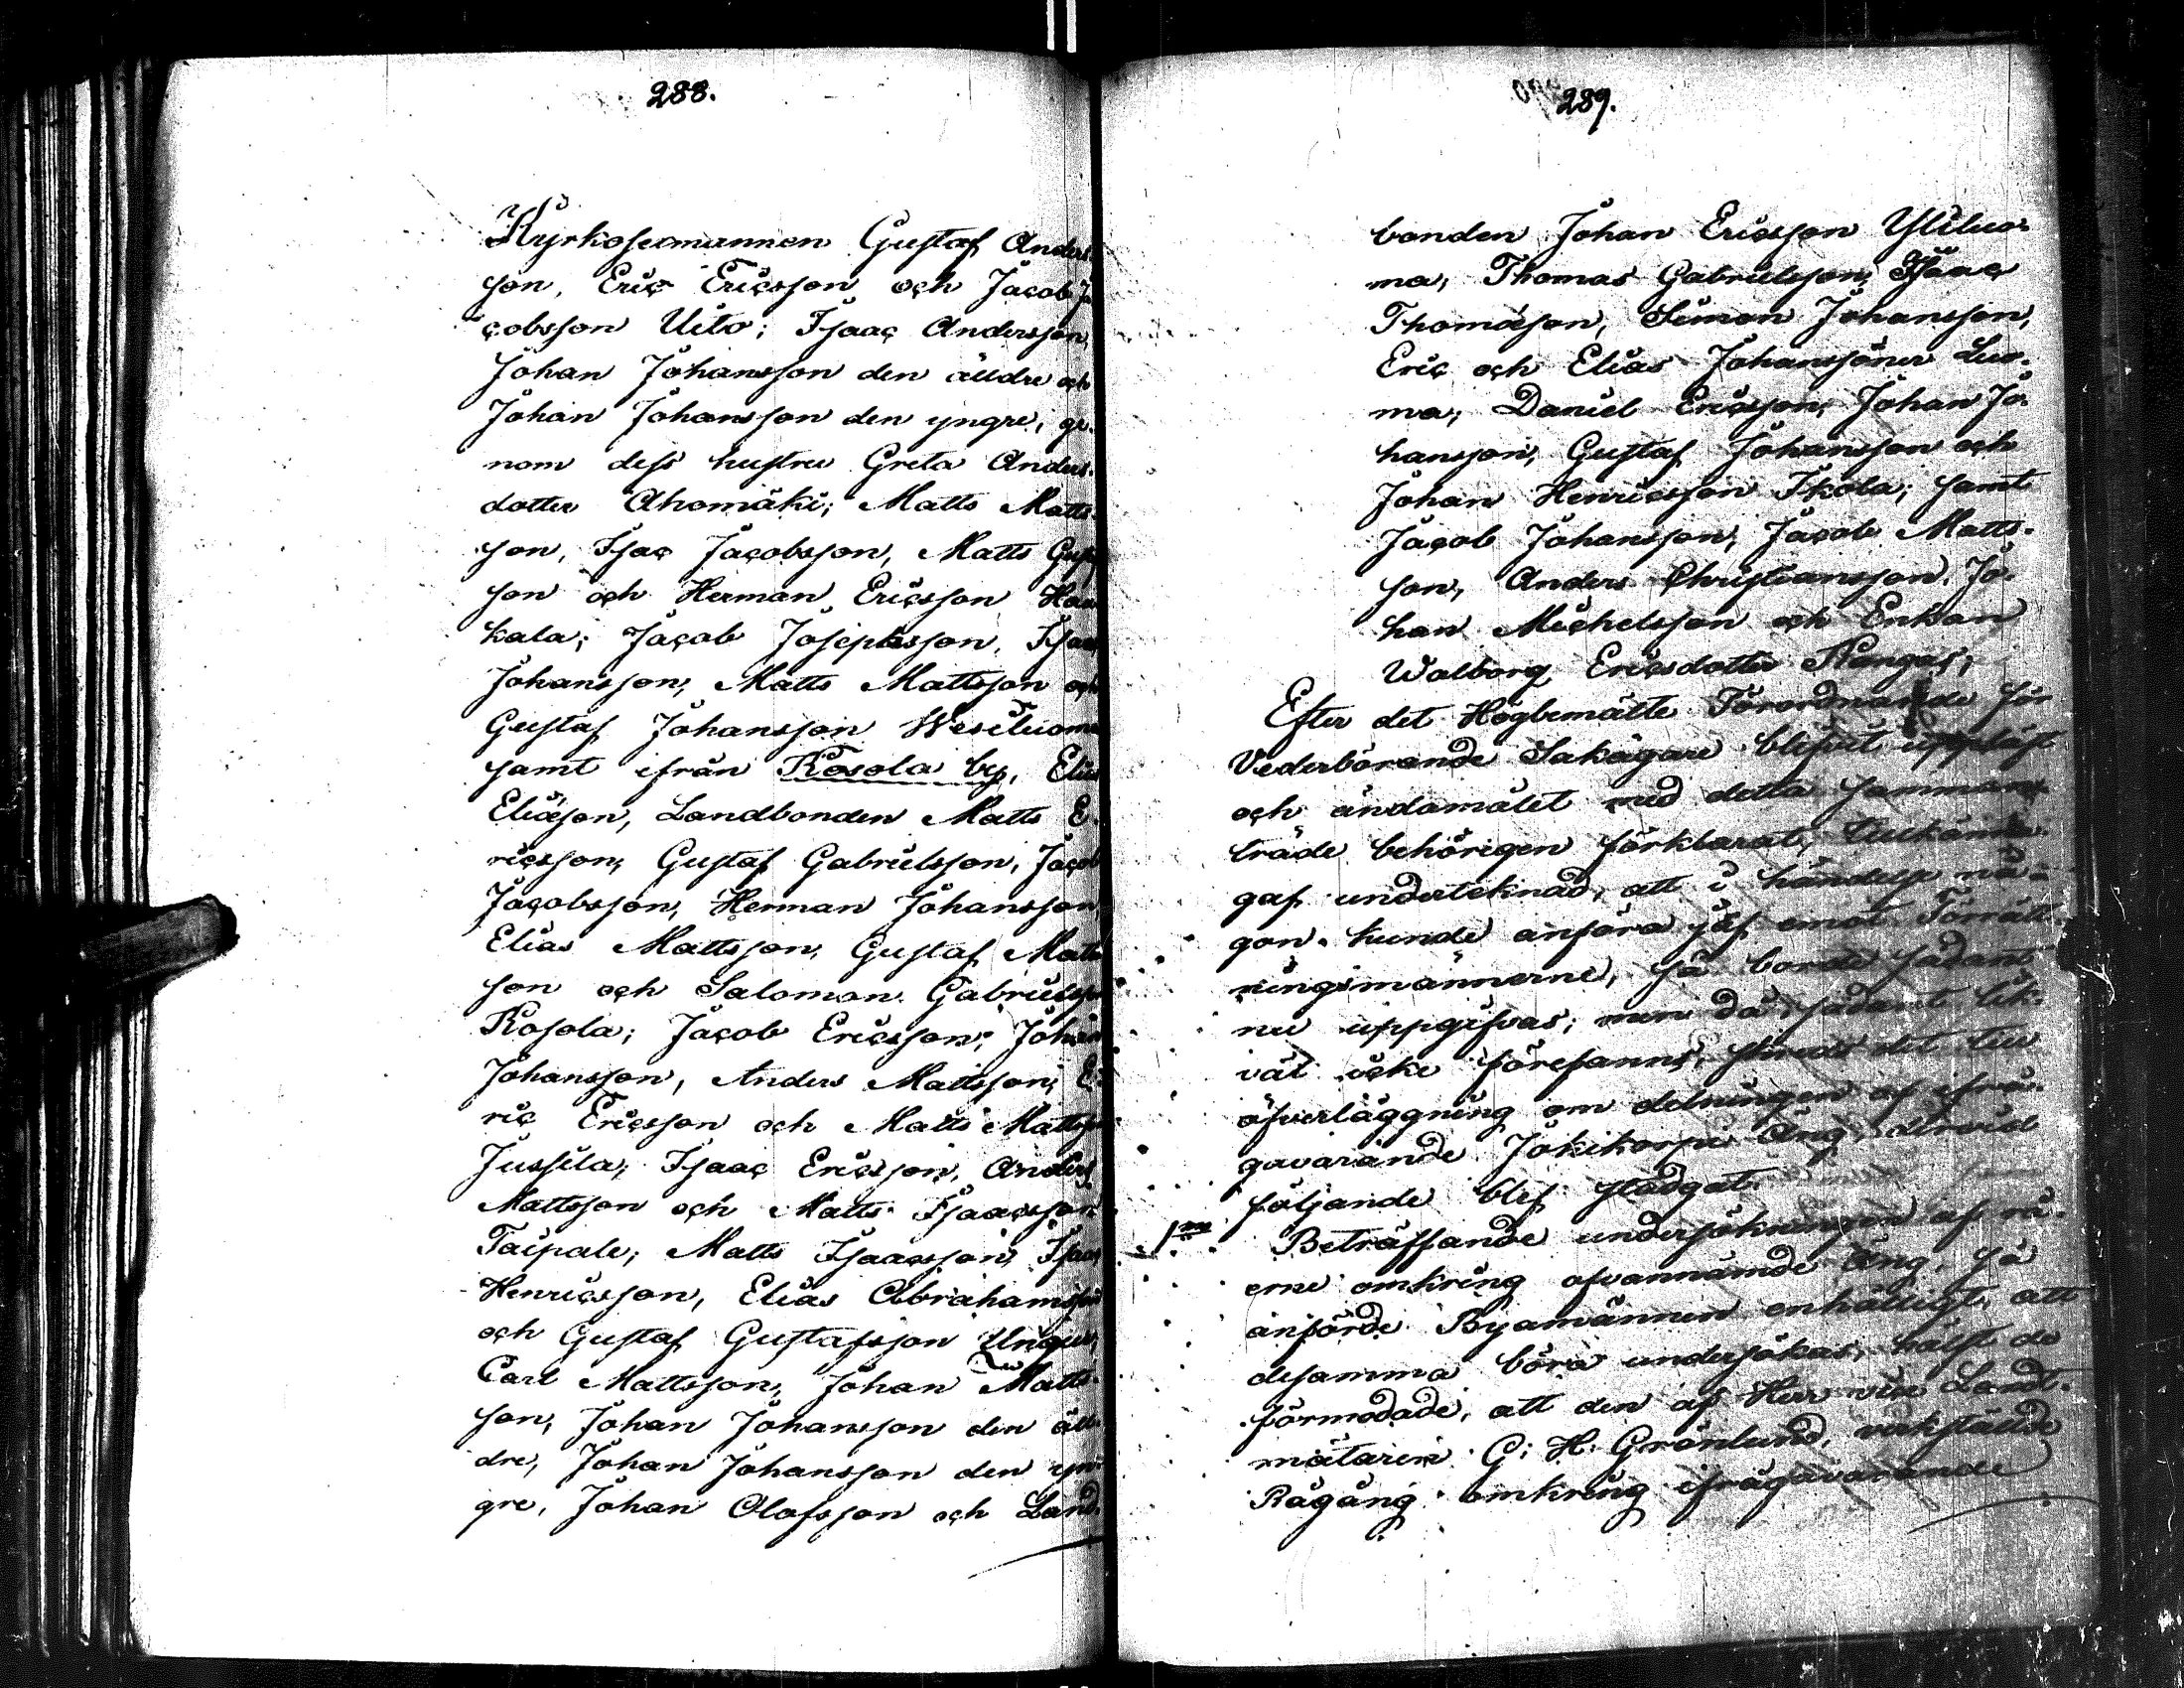 288.
Kyrkosexmannen Gustaf Anders-
son, Eric Ericsson och Jacob Ja-
cobsson Uito; Isaac Andersson,
Johan Johansson den äldre och
Johan Johansson den yngre, ge-
nom dess hustru Greta Anders-
dotter Ahomäki; Matts Matts-
son, Isac Jacobsson, Matts
son och Herman Ericsson Haa-
kala; Jacob Josephsson, Isaac
Johansson, Matts Mattsson och
Gustaf Johansson Wesiluoma
samt ifrån Kosola by, Elias
Eliæson, Landbonden Matts E-
ricsson, Gustaf Gabrielsson, Jacob
Jacobsson, Herman Johansson,
Elias Mattsson, Gustaf Matts-
son och Salomon Gabrielsson
Kosola; Jacob Ericsson, Johan
Johansson, Anders Mattsson, E-
ric Ericsson och Matts Mattsson
Jussila; Isaac Ericsson, Anders
Mattsson och Matts Isaacsson
Taipale; Matts Isaacsson, Isaac
Henricsson, Elias Abrahamsson
och Gustaf Gustafsson
Carl Mattsson, Johan Matts-
son, Johan Johansson den äl-
dre, Johan Johansson den yn-
gre, Johan Olofsson och Land-
289.
bonden Johan Ericsson Yliluo-
ma; Thomas Gabrielsson, Isaac
Thomæson, Simon Johansson,
Eric och Elias Johanssöner Luo-
ma; Daniel Ericsson, Johan Jo-
hansson, Gustaf Johansson och
Johan Henricsson Ikola; samt
Jacob Johansson, Jacob Matts-
son, Anders Christiansson, Jo-
han Michelsson och Enkan
Walborg Ericsdotter Kangas;
Efter det Högbemälte Förordnande för
Vederbörande Sakägare blifvit uppläst
och ändamålet med detta samman-
träde behörigen förklarat, tillkänna-
gaf undertecknad, att i händelse nå-
gon kunde anföra jäf emot Förrätt-
ningsmännerne, så borde sådant
nu uppgifvas; men då sådant lik-
väl icke förefanns, skreds det till
öfverläggning om delningen af ifrå-
gavarande Jokikorpi Äng, dervid
följande blef stadgat.
1mo Beträffande undersökningen af rå-
erne omkring ofvannämde Äng, så
anförde Byamännen enhälligt, att
desamma böra undersökas, hälst de
förmodade, att den af Herr vice Landt-
mätaren G: H: Grönlund, verkställde
Rågång omkring ifrågavarande